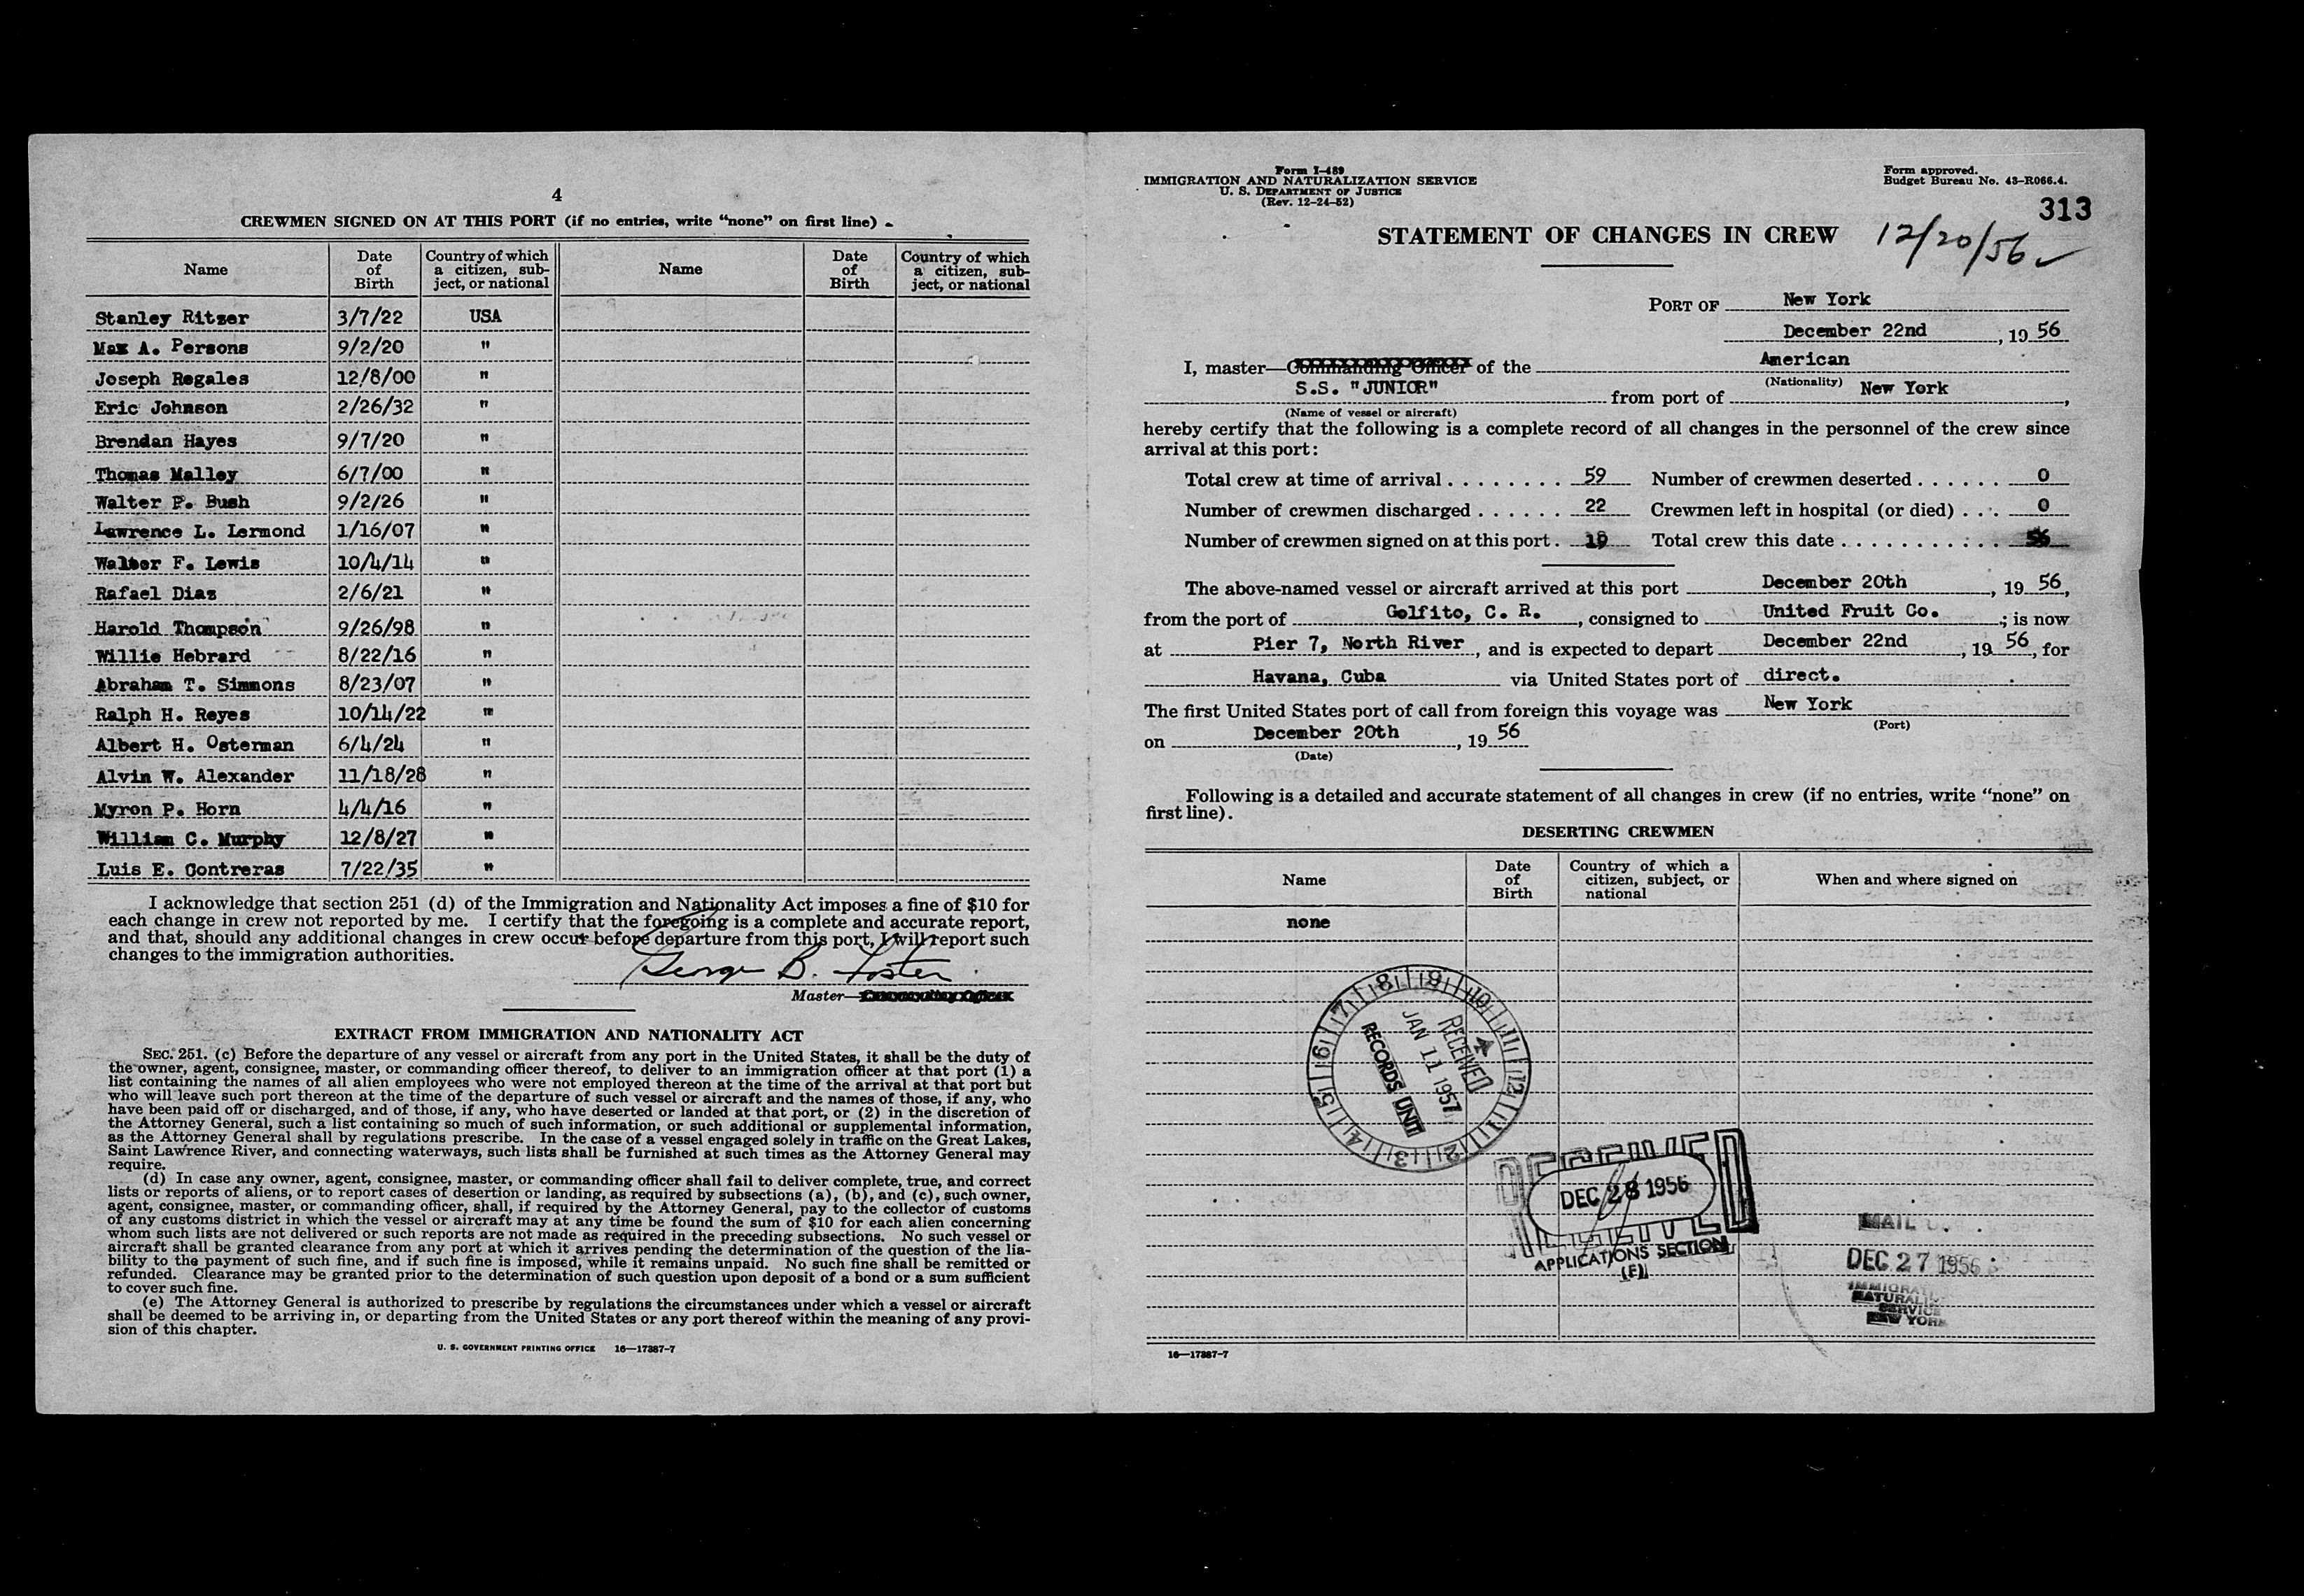 4
CREWMEN SIGNED ON AT THIS PORT (if no entries, write "none" on first line)
Name Date of Birth Country of which a citizen, subject, or national Name Date of Birth Country of which a citizen, subject, or national
Stanley Ritzer 3/7/22 USA
Max A. Persons 9/2/20 "
Joseph Regales 12/8/00 "
Eric Johnson 2/26/32 "
Brendan Hayes 9/7/20 "
Thomas Malley 6/7/00 "
Walter P. Bush 9/2/26 "
Lawrence L. Lermond 1/16/07 "
Walter F. Lewis 10/4/14 "
Rafael Diaz 2/6/21 "
Harold Thompson 9/26/98 "
Willie Hebrard 8/22/16 "
Abraham T. Simmons 8/23/07 "
Ralph H. Reyes 10/14/22 "
Albert H. Osterman 6/4/24 "
Alvin W. Alexander 11/18/28 "
Myron P. Horn 4/4/16 "
William C. Murphy 12/8/27 "
Luis E. Contreras 7/22/35 "
I acknowledge that section 251 (d) of the Immigration and Nationality Act imposes a fine of $10 for
each change in crew not reported by me. I certify that the foregoing is a complete and accurate report,
and that, should any additional changes in crew occur before departure from this port, I will report such
changes to the immigration authorities.
George B. Foster
Master—Commanding Officer
EXTRACT FROM IMMIGRATION AND NATIONALITY ACT
SEC. 251. (c) Before the departure of any vessel or aircraft from any port in the United States, it shall be the duty of
the owner, agent, consignee, master, or commanding officer thereof, to deliver to an immigration officer at that port (1) a
list containing the names of all alien employees who were not employed thereon at the time of the arrival at that port but
who will leave such port thereon at the time of the departure of such vessel or aircraft and the names of those, if any, who
have been paid off or discharged, and of those, if any, who have deserted or landed at that port, or (2) in the discretion of
the Attorney General, such a list containing so much of such information, or such additional or supplemental information,
as the Attorney General shall by regulations prescribe. In the case of a vessel engaged solely in traffic on the Great Lakes,
Saint Lawrence River, and connecting waterways, such lists shall be furnished at such times as the Attorney General may
require.
(d) In case any owner, agent, consignee, master, or commanding officer shall fail to deliver complete, true, and correct
lists or reports of aliens, or to report cases of desertion or landing, as required by subsections (a), (b), and (c), such owner,
agent, consignee, master, or commanding officer, shall, if required by the Attorney General, pay to the collector of customs
of any customs district in which the vessel or aircraft may at any time be found the sum of $10 for each alien concerning
whom such lists are not delivered or such reports are not made as required in the preceding subsections. No such vessel or
aircraft shall be granted clearance from any port at which it arrives pending the determination of the question of the lia-
bility to the payment of such fine, and if such fine is imposed, while it remains unpaid. No such fine shall be remitted or
refunded. Clearance may be granted prior to the determination of such question upon deposit of a bond or a sum sufficient
to cover such fine.
(e) The Attorney General is authorized to prescribe by regulations the circumstances under which a vessel or aircraft
shall be deemed to be arriving in, or departing from the United States or any port thereof within the meaning of any provi-
sion of this chapter.
U. S. GOVERNMENT PRINTING OFFICE 16—17387-7
Form I-489
IMMIGRATION AND NATURALIZATION SERVICE
U. S. DEPARTMENT OF JUSTICE
(Rev. 12-24-52)
Form approved.
Budget Bureau No. 43-R066.4.
313
STATEMENT OF CHANGES IN CREW
12/20/56
PORT OF New York
December 22nd, 19 56
I, master—Commanding Officer of the American
(Nationality)
S.S. "JUNIOR" from port of New York,
(Name of vessel or aircraft)
hereby certify that the following is a complete record of all changes in the personnel of the crew since
arrival at this port:
Total crew at time of arrival . . . . . . . . 59 Number of crewmen deserted . . . . . . 0
Number of crewmen discharged . . . . . . 22 Crewmen left in hospital (or died) . . . 0
Number of crewmen signed on at this port . Total crew this date . . . . . . . . . . . 56
The above-named vessel or aircraft arrived at this port December 20th, 19 56,
from the port of Golfito, C. R., consigned to United Fruit Co.; is now
at Pier 7, North River, and is expected to depart December 22nd, 19 56, for
Havana, Cuba via United States port of direct.
The first United States port of call from foreign this voyage was New York
(Port)
on December 20th, 19 56
(Date)
Following is a detailed and accurate statement of all changes in crew (if no entries, write "none" on
first line).
DESERTING CREWMEN
Name Date of Birth Country of which a citizen, subject, or national When and where signed on
none
8 9 10 11 12 1 2 3 4 5 6 7
RECEIVED
JAN 11 1957
RECORDS UNIT
RECEIVED
DEC 28 1956
APPLICATIONS SECTION
(F)
MAIL
DEC 27 1956
IMMIGRATION
NATURALIZ
SERVICE
NEW YORK
16—17387-7